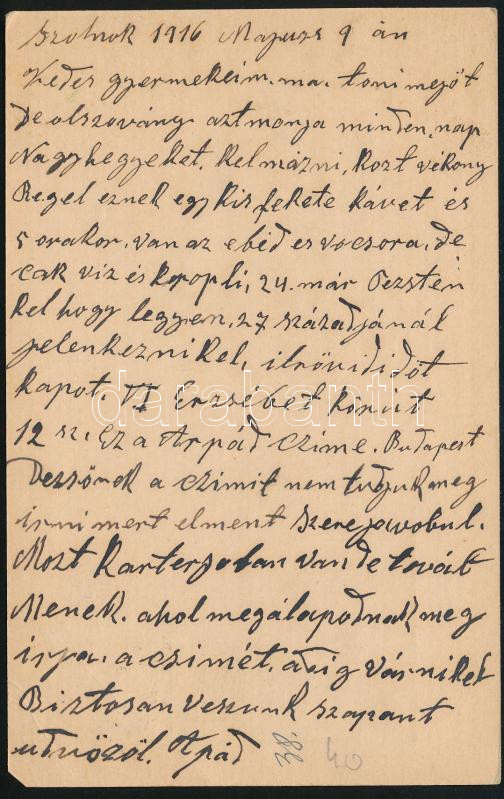 Szolnok 1916 Majuzs 9 án
Kedes gyermekeim. ma. toni mejöt
De olszovány aztmonja minden, nap
Nagyhegyeket. kelmázni, kozt vékony
Regel eznek egy kis fekete kávet és
5 orakor. van az ebéd es vocsora, de
cak viz és kropli, 24. már Pezsten
kel hogy legyen, 27 századjánál
jelenkezni kel,
kapot. VI Erzsébet körút
12 sz. Ez a Arpád czime. Budapest
Dezsőnek a czimit nem tudjuk meg
irni mert elment
Mozt van de tovább
Menek. ahol megálapodnak meg
irja. a czimét. adig várni kel
Biztosan veszunk szapant
udvözöl. Apád
38 40
darabanth